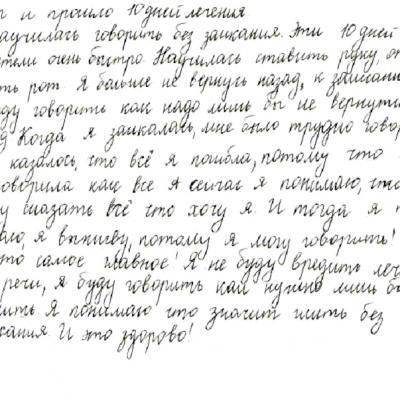 и прошло 10 дней лечения
научилась говорить без заикания. Эти 10 дней
тели очень быстро. Научилась ставить руку, от
ть рот. Я больше не вернусь назад, к заикани
ду говорить как надо лишь бы не вернуть
Когда я заикалась, мне было трудно говор
казалось, что всё я погибла, потому что
оворила как все. А сейчас я понимаю, что
у сказать всё что хочу я. И тогда я п
аю, я выживу, потому я могу говорить!
то самое главное! Я не буду вредить леч
речи, я буду говорить как нужно лишь бы
ить. Я понимаю что значит жить без
кания. И это здорово!